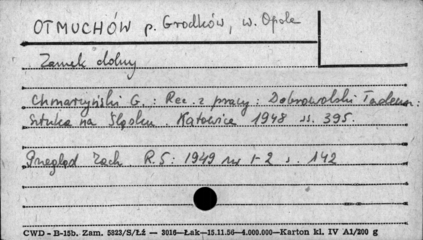 OTMUCHÓW p. Grodków, w. Opole
Zamek dolny
Chmarzyński G. : Rec. z pracy : Dobrowolski Tadeusz :
Sztuka na Śląsku. Katowice 1948 s. 395.
Przegląd Zach. R.5: 1949 nr 1-2 s. 142
CWD - B-15b. Zam. 5823/S/Łź — 3016—Łak—15.11.56—4.000.000—Karton kl. IV A1/200 g